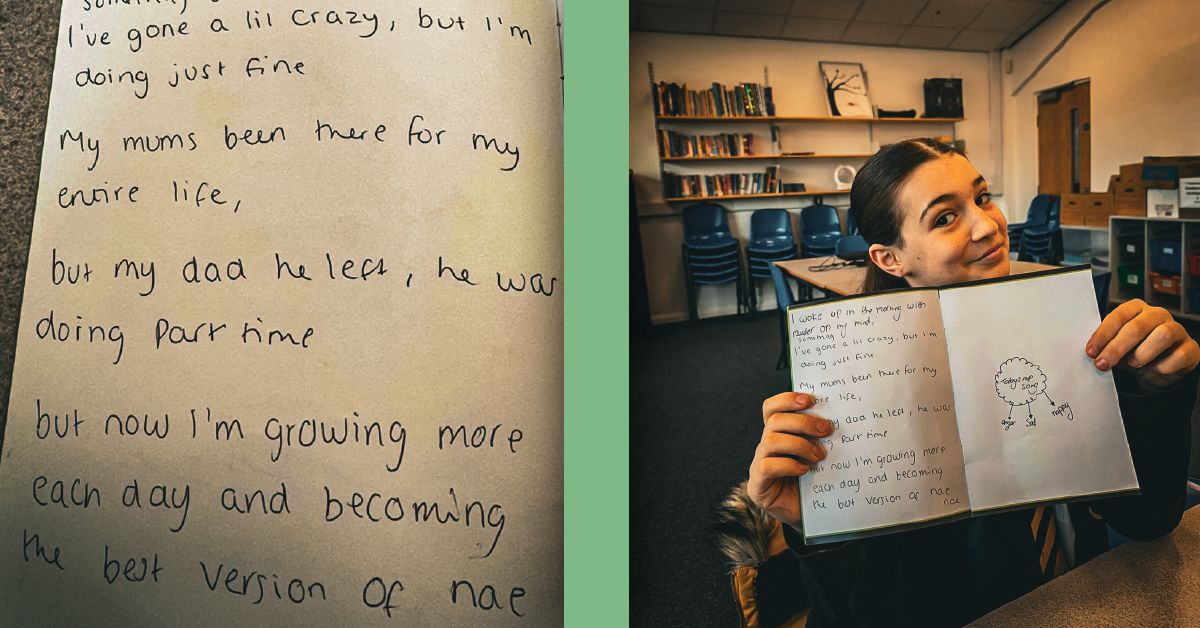 I've gone a lil crazy, but I'm
doing just fine
My mums been there for my
entire life,
but my dad he left, he was
doing Part time
but now I'm growing more
each day and becoming
the best version of nae
I woke up in the morning with
on my mind,
something
I've gone a lil crazy, but I'm
doing just fine
My mums been there for my
life,
my dad he left, he was
Part time
but now I'm growing more
each day and becoming
the best version of nae
nae
Todays rap
song
sad
happy